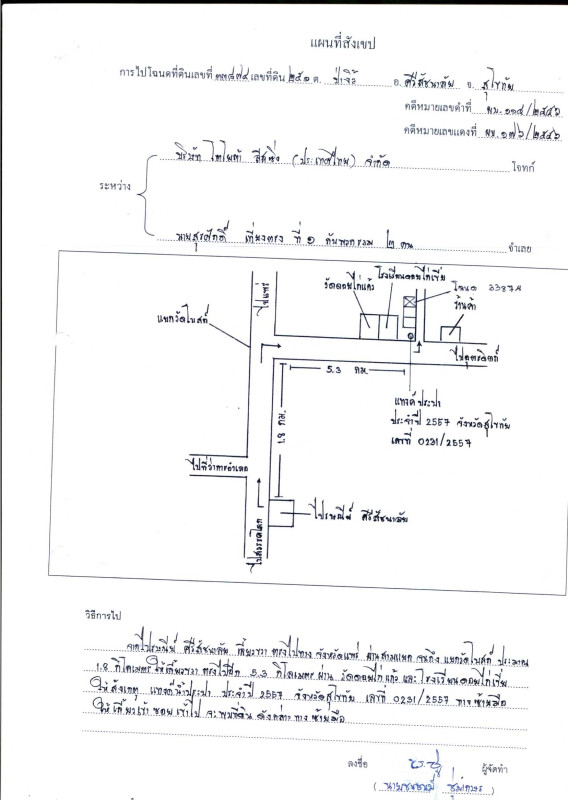 แผนที่สังเขป
การไปโฉนดที่ดินเลขที่ ๓๓๘๗๔ เลขที่ดิน ๒๕๑ ต. ป่างิ้ว อ. ศรีสัชนาลัย จ. สุโขทัย
คดีหมายเลขดำที่ ผบ. ๑๑๔/๒๕๕๖
คดีหมายเลขแดงที่ ผบ. ๑๗๖/๒๕๕๖
บริษัท ไทโยต้า ลีสซิ่ง (ประเทศไทย) จำกัด โจทก์
ระหว่าง
นายสุรศักดิ์ เที่ยงตรง ที่ ๑ กับพวกรวม ๒ คน จำเลย
ไปแพร่
วัดดอนไก่แก้ว
โรงเรียนดอนไก่เขี่ย
โฉนด 33874
ร้านค้า
แยกวัดโบสถ์
ไปอุตรดิตถ์
5.3 กม.
แทงค์ประปา
ประจำปี 2557 จังหวัดสุโขทัย
เลขที่ 0231/2557
1.8 กม.
ไปที่ว่าการอำเภอ
ไปรษณีย์ ศรีสัชนาลัย
ไปสวรรคโลก
วิธีการไป
จากไปรษณีย์ ศรีสัชนาลัย เลี้ยวขวา ตรงไปทาง จังหวัดแพร่ ผ่านสามแยก จนถึง แยกวัดโบสถ์ ประมาณ
1.8 กิโลเมตร ให้เลี้ยวขวา ตรงไปอีก 5.3 กิโลเมตร ผ่าน วัดดอนไก่แก้ว และ โรงเรียนดอนไก่เขี่ย
ให้สังเกตุ แทงค์น้ำประปา ประจำปี 2557 จังหวัดสุโขทัย เลขที่ 0231/2557 ทางซ้ายมือ
ให้เลี้ยวเข้า ซอย เข้าไป จะพบที่ดิน ดังกล่าว ทางซ้ายมือ
ลงชื่อ ผู้จัดทำ